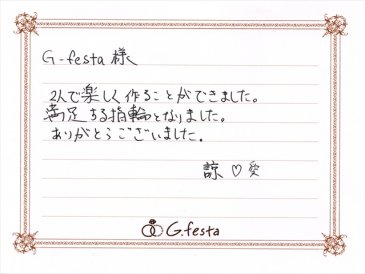 G-festa 様
2人で楽しく作ることができました。
満足する指輪となりました。
ありがとうございました。
諒♡愛
G.festa